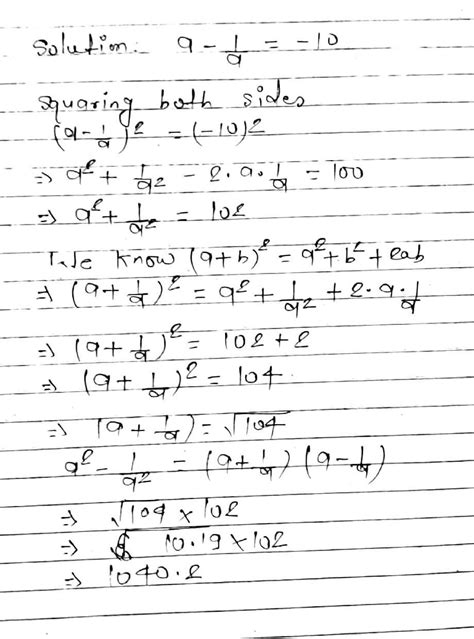 Solution:- a - 1/a = -10
Squaring both sides
(a - 1/a)² = (-10)²
⇒ a² + 1/a² - 2·a·1/a = 100
⇒ a² + 1/a² = 102
We know (a+b)² = a² + b² + 2ab
⇒ (a + 1/a)² = a² + 1/a² + 2·a·1/a
⇒ (a + 1/a)² = 102 + 2
⇒ (a + 1/a)² = 104
⇒ (a + 1/a) = √104
a² - 1/a² = (a + 1/a) (a - 1/a)
⇒ √104 × 102
⇒ 10.19 × 102
⇒ 1040.2